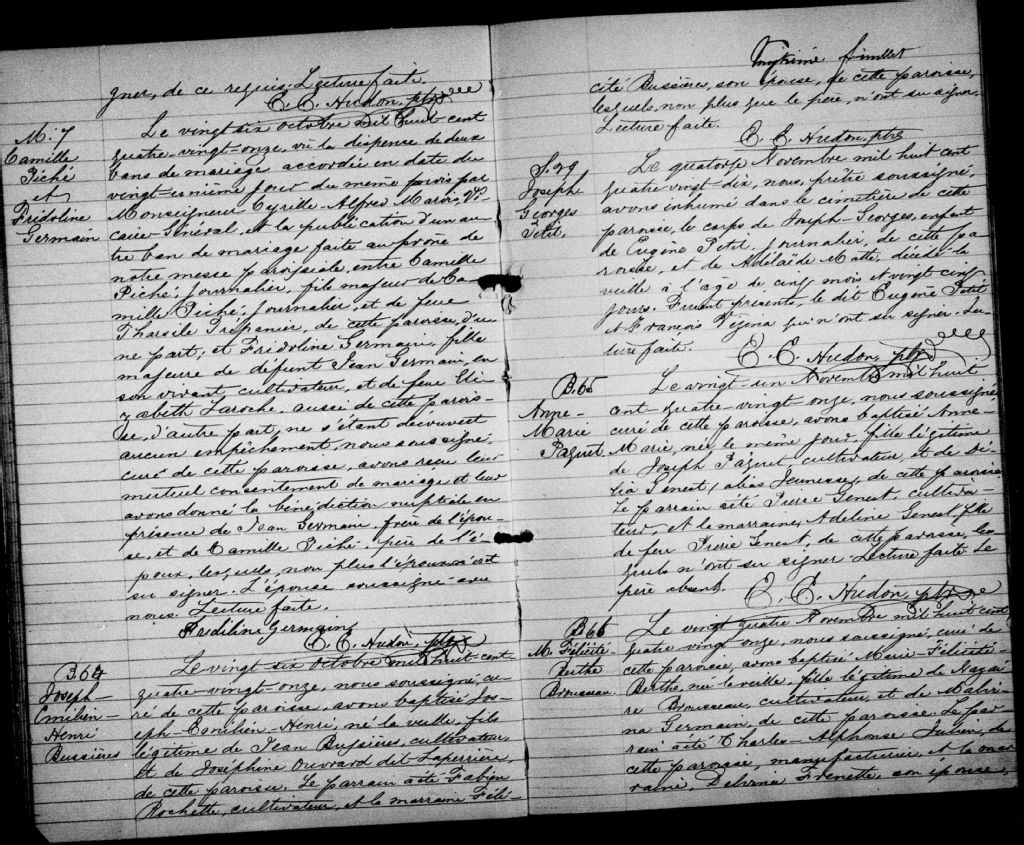 gner, de ce requis. Lecture faite.
E. E. Hudon, ptre
M. 7
Camille
Piché
et
Fridoline
Germain
Le vingt six octobre mil huit cent
quatre-vingt-onze, vu la dispense de deux
bans de mariage accordée en date du
vingt-unième jour du même mois par
Monseigneur Cyrille-Alfred Marois, Vi-
caire Général, et la publication d'un au-
tre ban de mariage faite au prône de
notre messe paroissiale, entre Camille
Piché, journalier, fils majeur de Ca-
mille Piché, journalier, et de feue
Tharsile Trépanier, de cette paroisse, d'u-
ne part; et Fridoline Germain, fille
majeure de défunt Jean Germain, en
son vivant, cultivateur, et de feue Eli-
zabeth Laroche, aussi de cette parois-
se, d'autre part, ne s'étant découvert
aucun empêchement, nous soussigné,
curé de cette paroisse, avons reçu leur
mutuel consentement de mariage et leur
avons donné la bénédiction nuptiale en
présence de Jean Germain, frère de l'épou-
se, et de Camille Piché, père de l'é-
poux, lesquels, non plus l'époux n'ont
su signer. L'épouse soussigné avec
nous. Lecture faite.
Fridoline Germain
E. E. Hudon, ptre
B. 64
Joseph-
Emilien-
Henri
Bussières
Le vingt six octobre mil huit cent-
quatre-vingt-onze, nous soussigné, cu-
ré de cette paroisse, avons baptisé Jos
eph-Emilien-Henri, né la veille, fils
légitime de Jean Bussières, cultivateur,
et de Joséphine Ouvrard dit Laperrière,
de cette paroisse. Le parrain a été Fabien
Rochette, cultivateur, et la marraine Féli-
feuillet
cité Bussières, son épouse, de cette paroisse,
lesquels, non plus que le père, n'ont su signer.
Lecture faite.
E. E. Hudon, ptre
S. 29
Joseph
Georges
Petit
Le quatorze Novembre mil huit cent
quatre vingt-dix, nous, prêtre soussigné,
avons inhumé dans le cimetière de cette
paroisse, le corps de Joseph-Georges, enfant
de Eugène Petit, journalier, de cette pa-
roisse, et de Adélaïde Matte, décédé la
veille à l'age de cinq mois et vingt cinq
jours. Furent présents, le dit Eugène Petit
et François Vézina qui n'ont su signer. Lec-
ture faite.
E. E. Hudon, ptre
B. 65
Anne-
Marie
Paquet
Le vingt-un Novembre mil huit
cent-quatre-vingt-onze, nous soussigné
curé de cette paroisse, avons baptisé Anne-
Marie, née le même jour, fille légitime
de Joseph Paquet, cultivateur, et de Dé-
lia Genest (alias Jeunesse), de cette paroisse
Le parrain a été Pierre Genest, cultiva-
teur, et la marraine, Adeline Genest, fille
de feu Pierre Genest, de cette paroisse, les-
quels n'ont su signer. Lecture faite. Le
père absent.
E. E. Hudon, ptre
B. 66
M. Félicité-
Berthe
Brousseau
Le vingt quatre Novembre mil huit cent
quatre vingt onze, nous soussigné, curé de
cette paroisse, avons baptisé Marie-Félicité-
Berthe, née la veille, fille légitime de Nazai-
re Brousseau, cultivateur, et de Malvi-
na Germain, de cette paroisse. Le par-
rain a été Charles-Alphonse Lubin, de
cette paroisse, manufacturier, et la mar
raine, Delvina Frenette, son épouse,